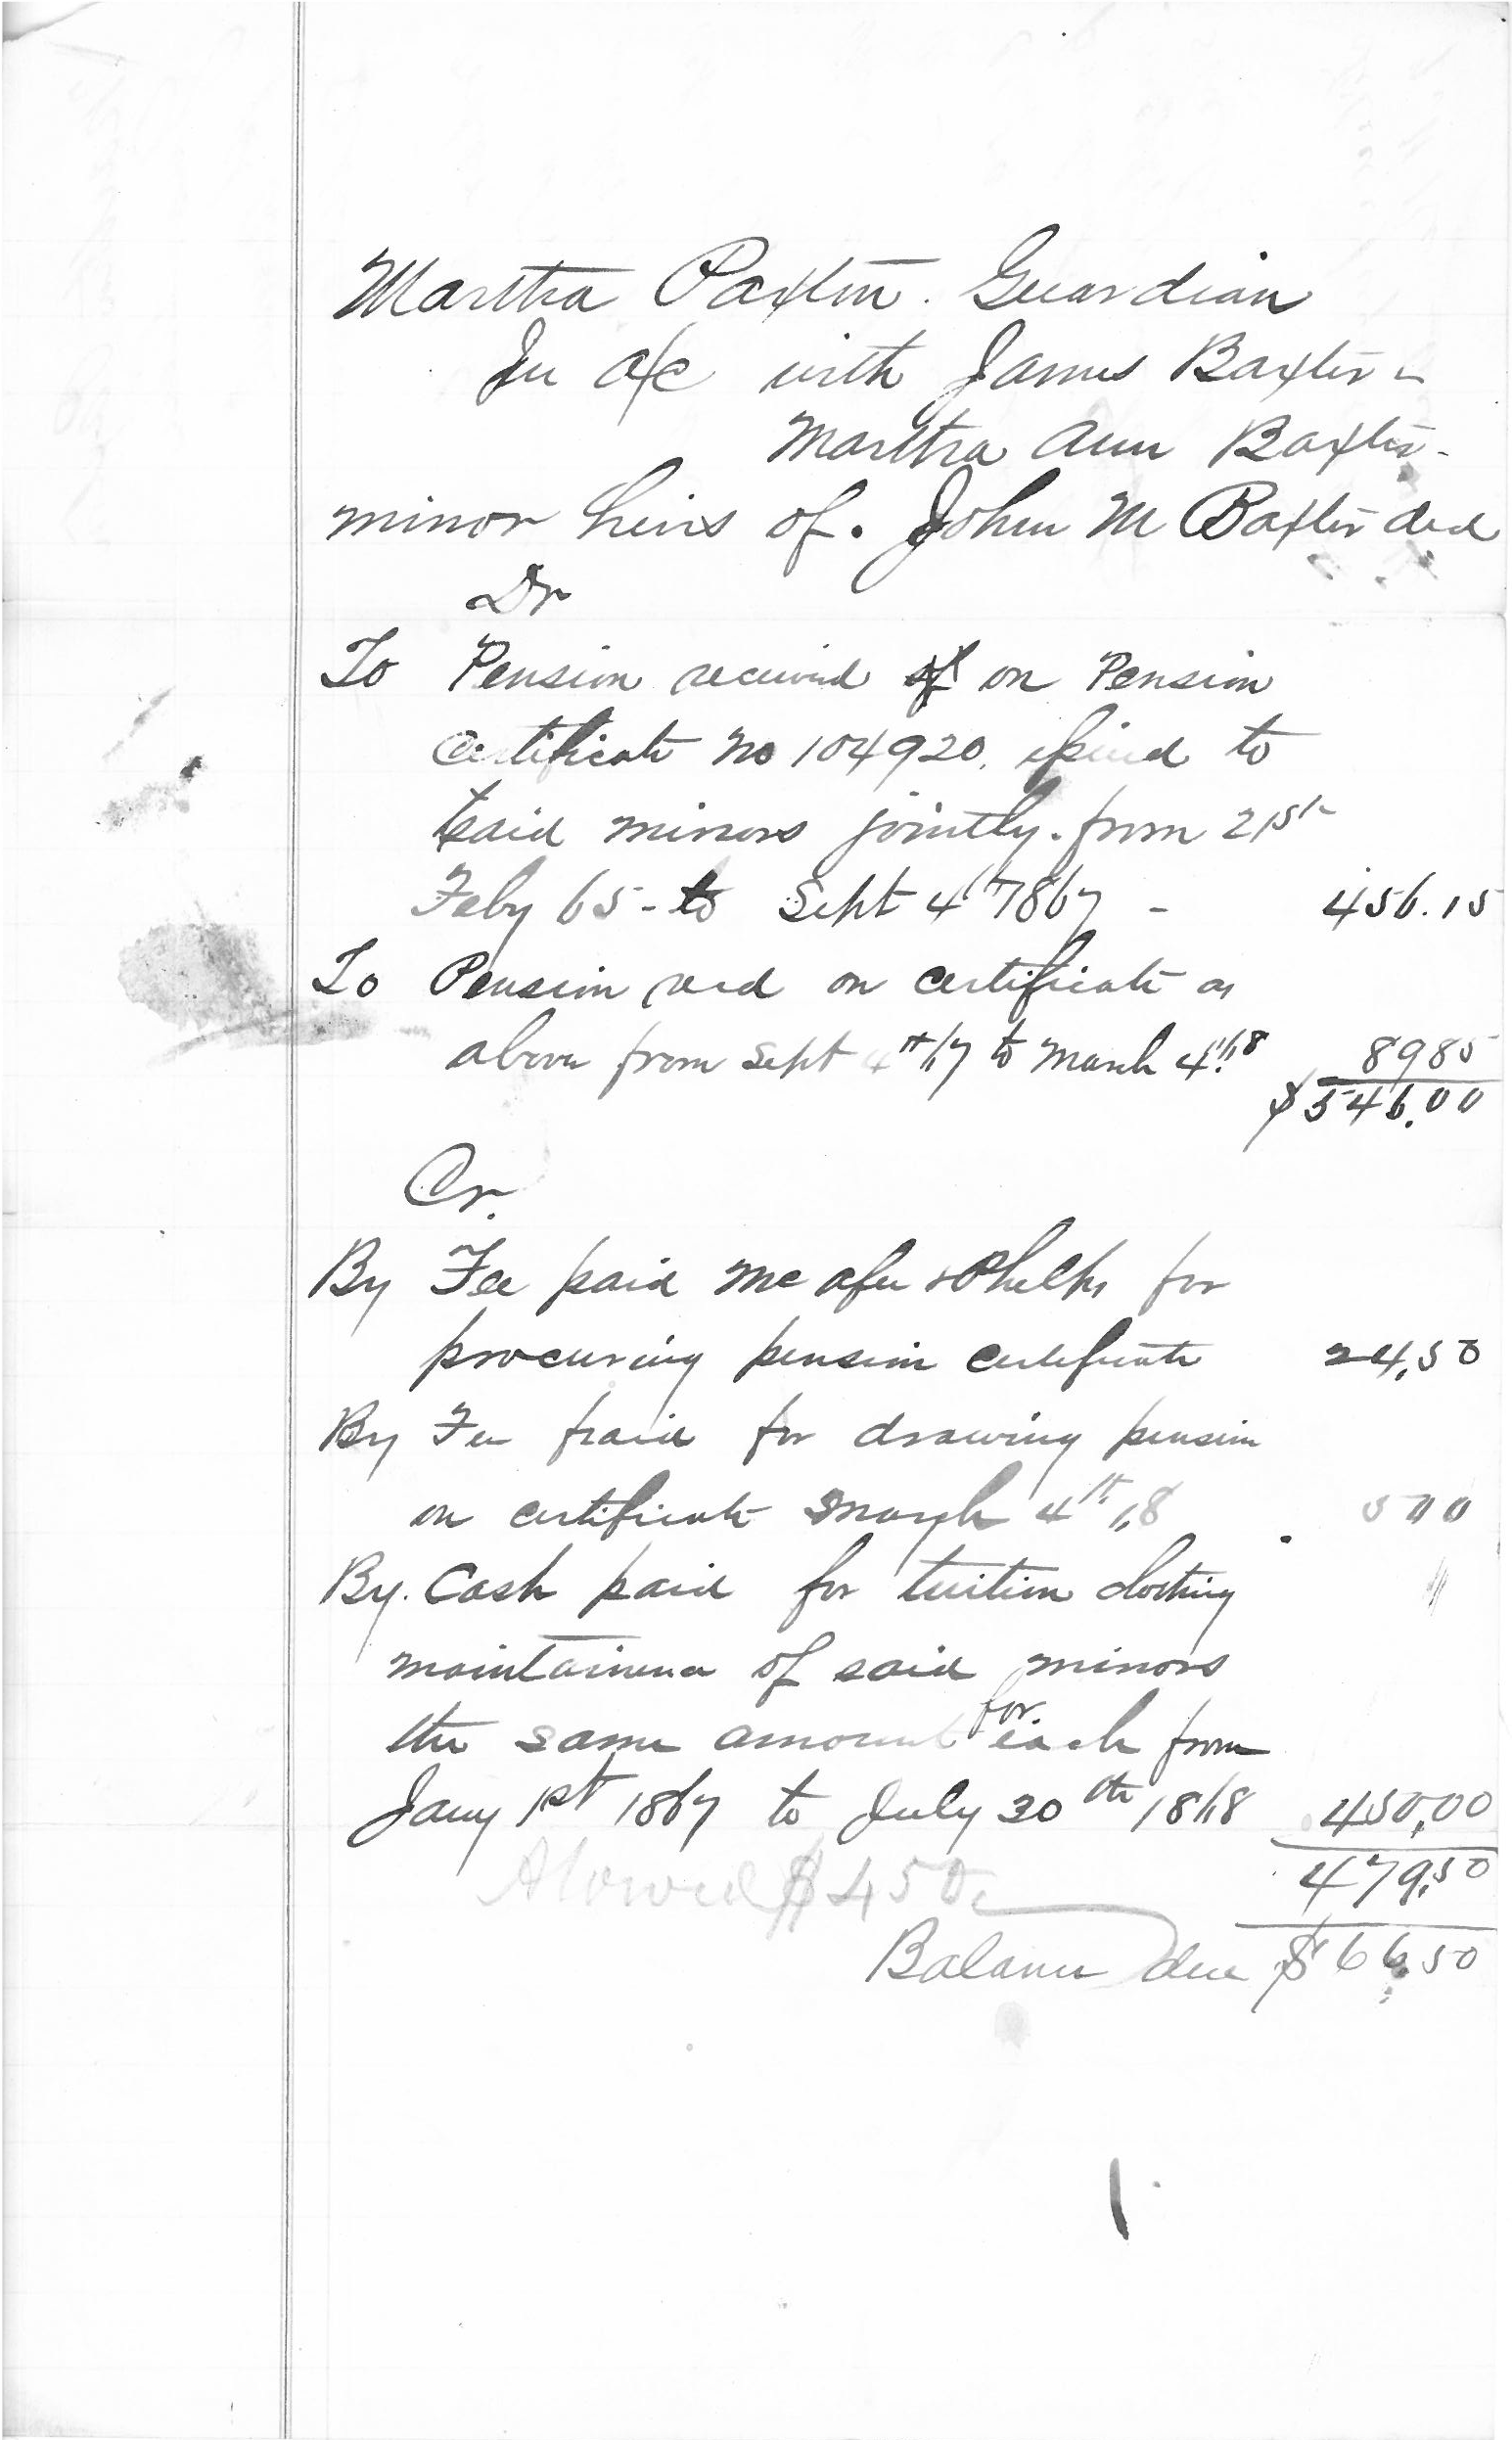 Martha Paxton. Guardian
In a/c with James Baxter &
Martha Ann Baxter -
minor heirs of. John M Baxter decd
Dr
To Pension received of on Pension
Certificate No 104920. issued to
said minors jointly. from 21st
Feby 65 - to Sept 4th 1867 - 456.15
To Pension recd on certificate as
above from Sept 4th 67 to March 4th 68 89 85
$546.00
Cr.
By Fee paid McAfee & Phelps for
procuring pension certificate 24.50
By Fee paid for drawing pension
on certificate March 4th 68 5 00
By. Cash paid for tuition clothing
maintainence of said minors
for
the same amount each from
Jany 1st 1867 to July 30th 1868 450.00
479.50
Alowed $450.
Balance due $66.50